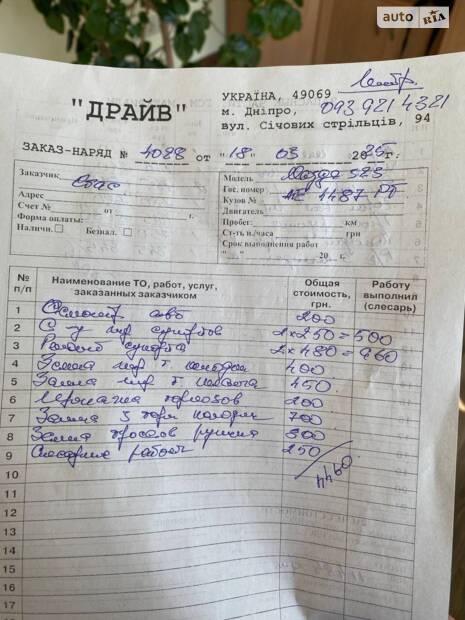 auto RIA
УКРАЇНА, 49069
"ДРАЙВ"
м. Дніпро, 093 921 4321
вул. Січових стрільців, 94
ЗАКАЗ-НАРЯД № 4088 от "18" 03 2025 г.
Заказчик
Адрес
Счет № от г.
Форма оплаты:
Наличн. Безнал.
Модель Мазда 323
Гос. номер
Кузов № АЕ 1487 РТ
Двигатель
Пробег: км
Ст-ть н./часа грн
Срок выполнения работ
"__" 20 г.
№ п/п Наименование ТО, работ, услуг, заказанных заказчиком Общая стоимость, грн. Работу выполнил (слесарь)
1 Осмотр авто 200
2 С у пер супортов 2x250=500
3 Ремонт супорта 2x480=960
4 Замена пер т. колодок 400
5 Замена пер т. шланга 450
6 Прокачка тормозов 200
7 Замена з торм колодок 700
8 Замена тросов ручника 800
9 Слесарные работы 250
10 4460
11
12
13
14
15
16
17